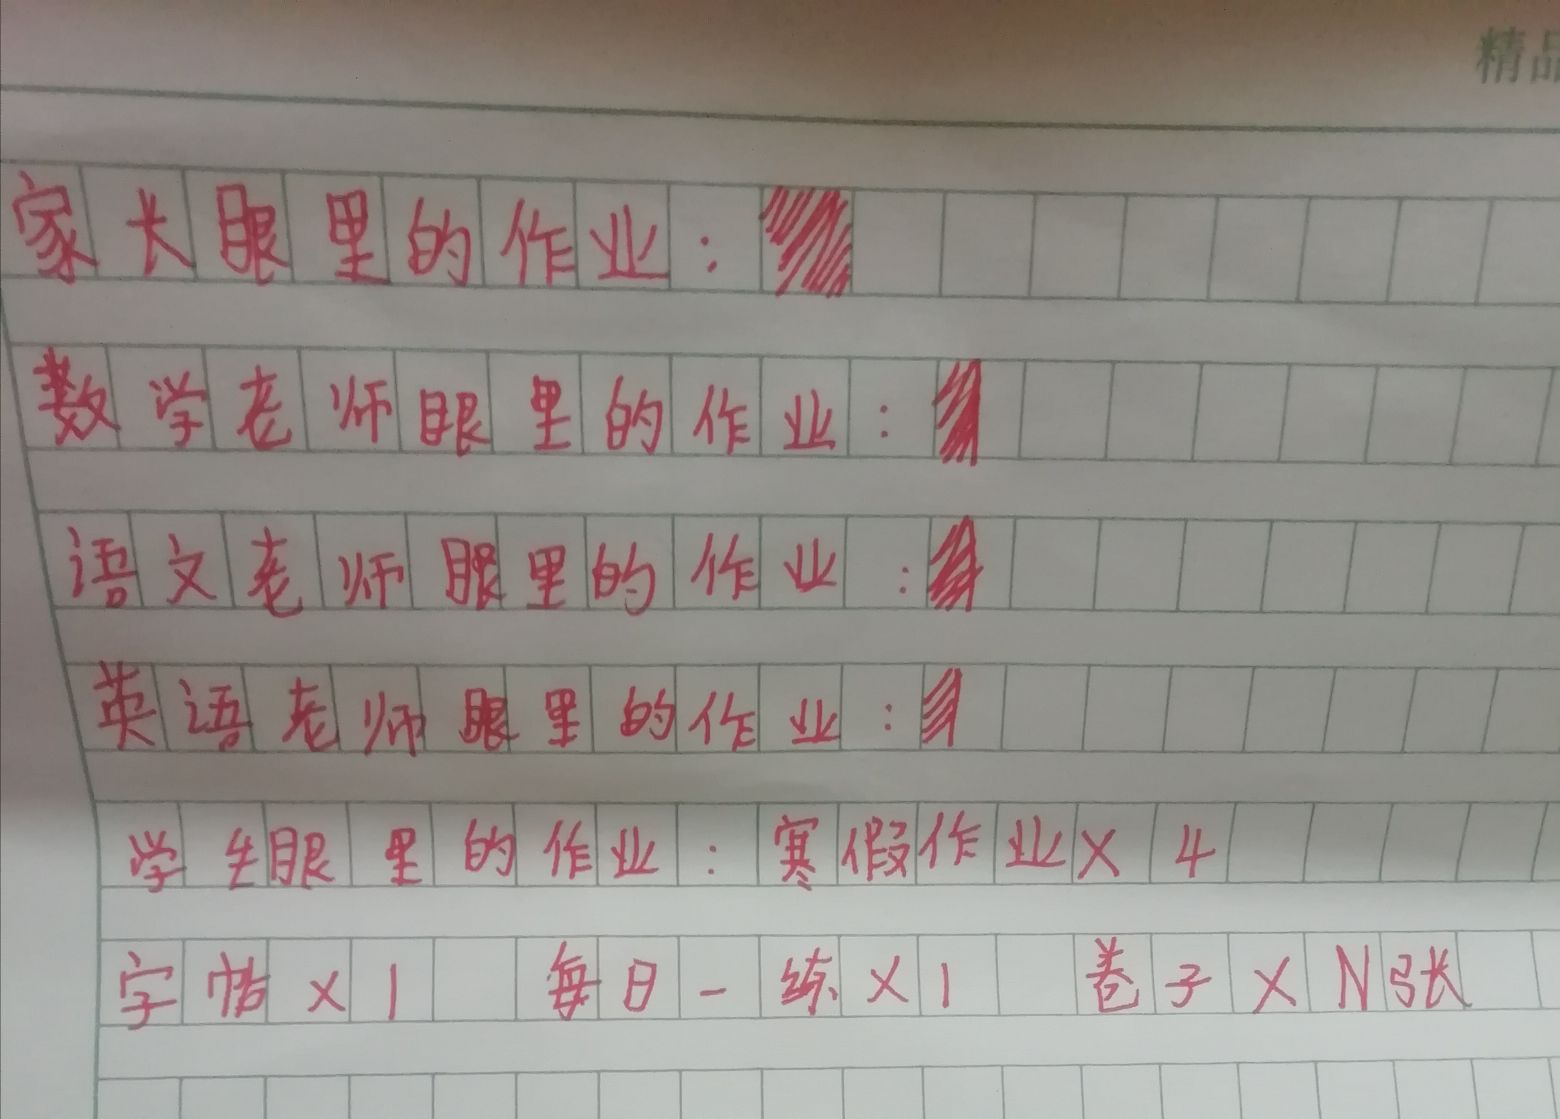 精品
家长眼里的作业：
数学老师眼里的作业：
语文老师眼里的作业：
英语老师眼里的作业：
学生眼里的作业：寒假作业×4
字帖×1 每日一练×1 卷子×N张